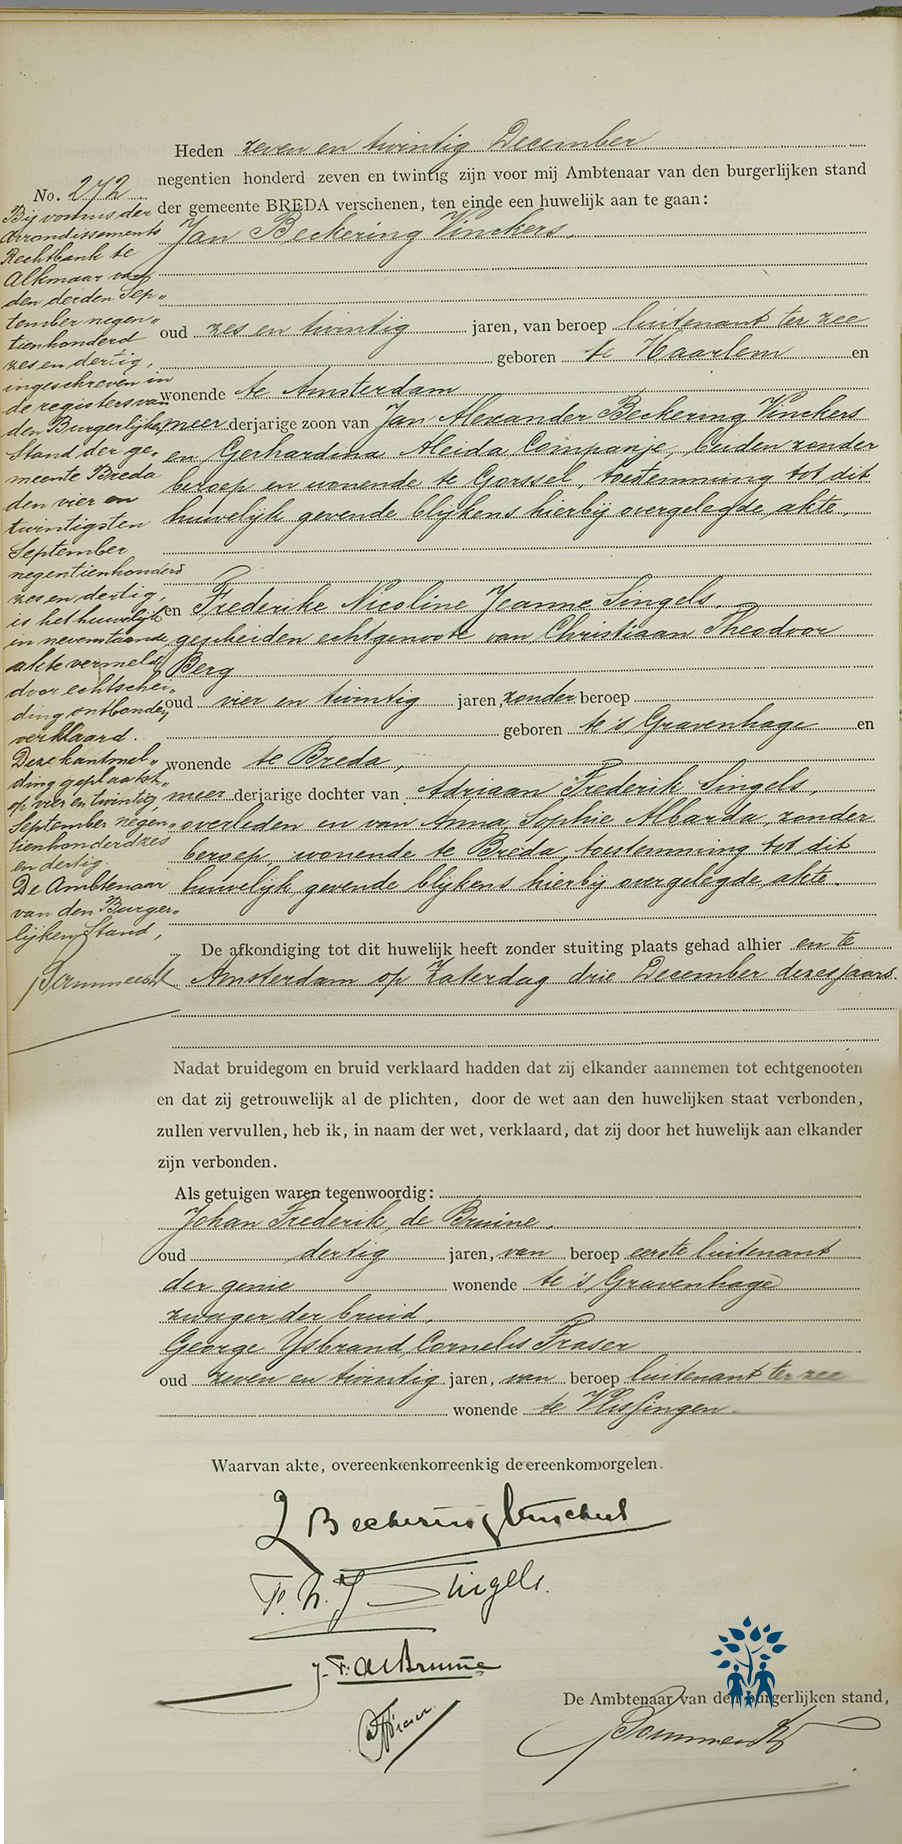 Heden zeven en twintig December
negentien honderd zeven en twintig zijn voor mij Ambtenaar van den burgerlijken stand
der gemeente BREDA verschenen, ten einde een huwelijk aan te gaan:
Jan Beckering Vinckers,
oud zes en twintig jaren, van beroep luitenant ter zee
geboren te Haarlem en
wonende te Amsterdam
meer derjarige zoon van Jan Alexander Beckering Vinckers
en Gerhardina Aleida Companje, beiden zonder
beroep en wonende te Gorssel, toestemming tot dit
huwelijk gevende blijkens hierbij overgelegde akte,
en Frederike Nicoline Jeanne Singels,
gescheiden echtgenoote van Christiaan Theodoor
Berg
oud vier en twintig jaren, zonder beroep
geboren te 's Gravenhage en
wonende te Breda,
meer derjarige dochter van Adriaan Frederik Singels,
overleden en van Anna Sophie Albarda, zonder
beroep, wonende te Breda, toestemming tot dit
huwelijk gevende blijkens hierbij overgelegde akte.
De afkondiging tot dit huwelijk heeft zonder stuiting plaats gehad alhier en te
Amsterdam op Zaterdag drie December dezes jaars.
Nadat bruidegom en bruid verklaard hadden dat zij elkander aannemen tot echtgenooten
en dat zij getrouwelijk al de plichten, door de wet aan den huwelijken staat verbonden,
zullen vervullen, heb ik, in naam der wet, verklaard, dat zij door het huwelijk aan elkander
zijn verbonden.
Als getuigen waren tegenwoordig:
Johan Frederik de Bruine,
oud dertig jaren, van beroep eerste luitenant
der genie wonende te 's Gravenhage
zwager der bruid,
George Ysbrand Cornelis Fraser
oud zeven en twintig jaren, van beroep luitenant ter zee
wonende te Vlissingen.
Waarvan akte,
J Beckering Vinckers
F. N. J Singels.
J. F. de Bruine
Fraser
De Ambtenaar van den burgerlijken stand,
No. 272
Bij vonnis der
Arrondissements
Rechtbank te
Alkmaar van
den derden Sep-
tember negen-
tienhonderd
zes en dertig,
ingeschreven in
de registers van
den Burgerlijken
Stand der ge-
meente Breda
den vier en
twintigsten
September
negentienhonderd
zes en dertig,
is het huwelijk
in nevenstaande
akte vermeld
door echtschei-
ding ontbonden
verklaard.
Deze kantmel-
ding geplaatst
op vier en twintig
September negen-
tienhonderd zes
en dertig.
De Ambtenaar
van den Burger-
lijken Stand,